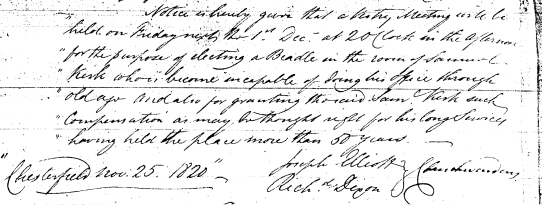 Notice is hereby given that a Vestry Meeting will be
held on Friday next, the 1st Decr at 2 O Clock in the Afternoon
"for the purpose of electing a Beadle in the room of Samuel
"Kirk who is become incapable of doing his office through
"old age and also for granting the said Saml Kirk such
"Compensation as may be thought right for his long Services
"having held the place more than 50 years.
Joseph Elliott
"Chesterfield Nov. 25. 1820" Churchwardens
Richd Dixon